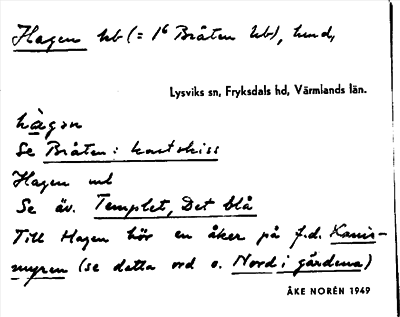 Hagen hb (= 1⁶ Bråten hb), hmd,
Lysviks sn, Fryksdals hd, Värmlands län.
hàgən
Se Bråten: kartskiss
Hagen ml
Se äv. Templet, Det blå
Till Hagen hör en åker på f.d. Kanis-
myren (se detta ord o. Nord i gårdena)
ÅKE NORÉN 1949